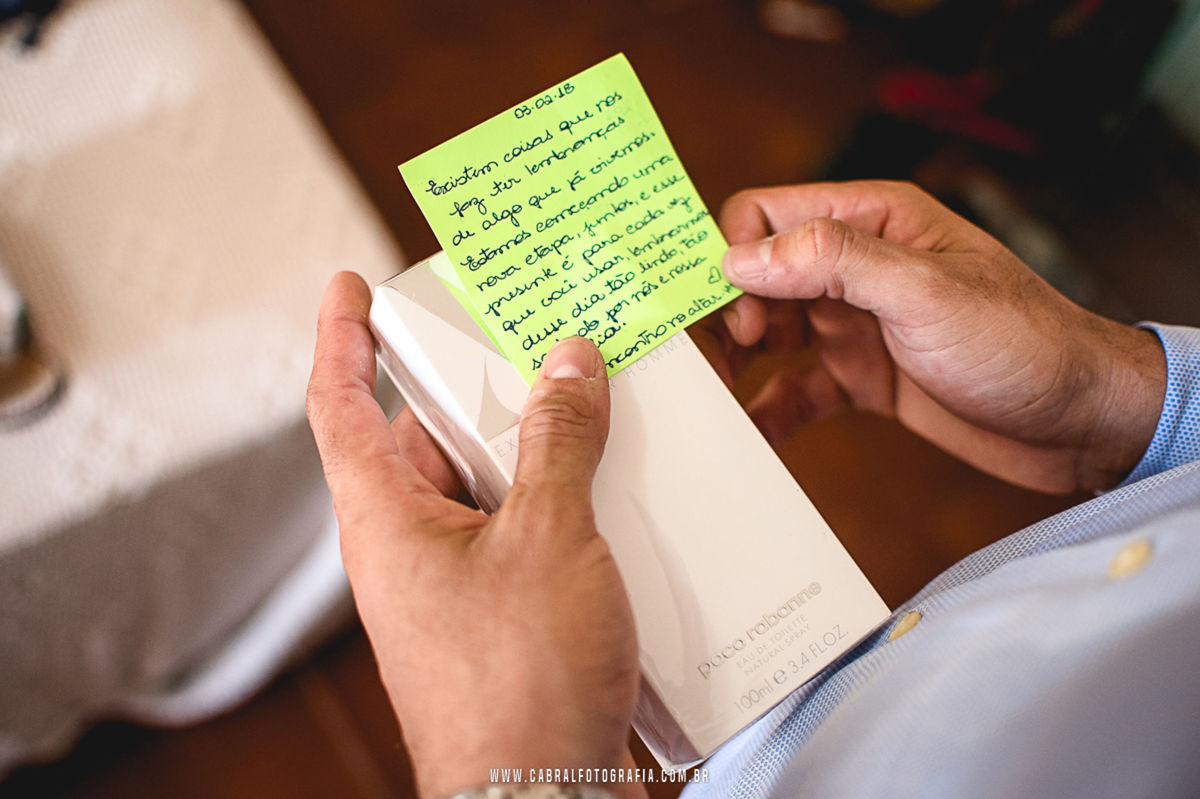 03.02.18
Existem coisas que nos
faz ter lembranças
de algo que já vivemos.
Estamos começando uma
nova etapa, juntos, e esse
presente é para cada vez
que você usar, lembrarmos
desse dia tão lindo, tão
por nós e nossa
no altar.
HOMME
paco rabanne
EAU DE TOILETTE
NATURAL SPRAY
100ml e 3.4 FL.OZ.
WWW.CABRALFOTOGRAFIA.COM.BR